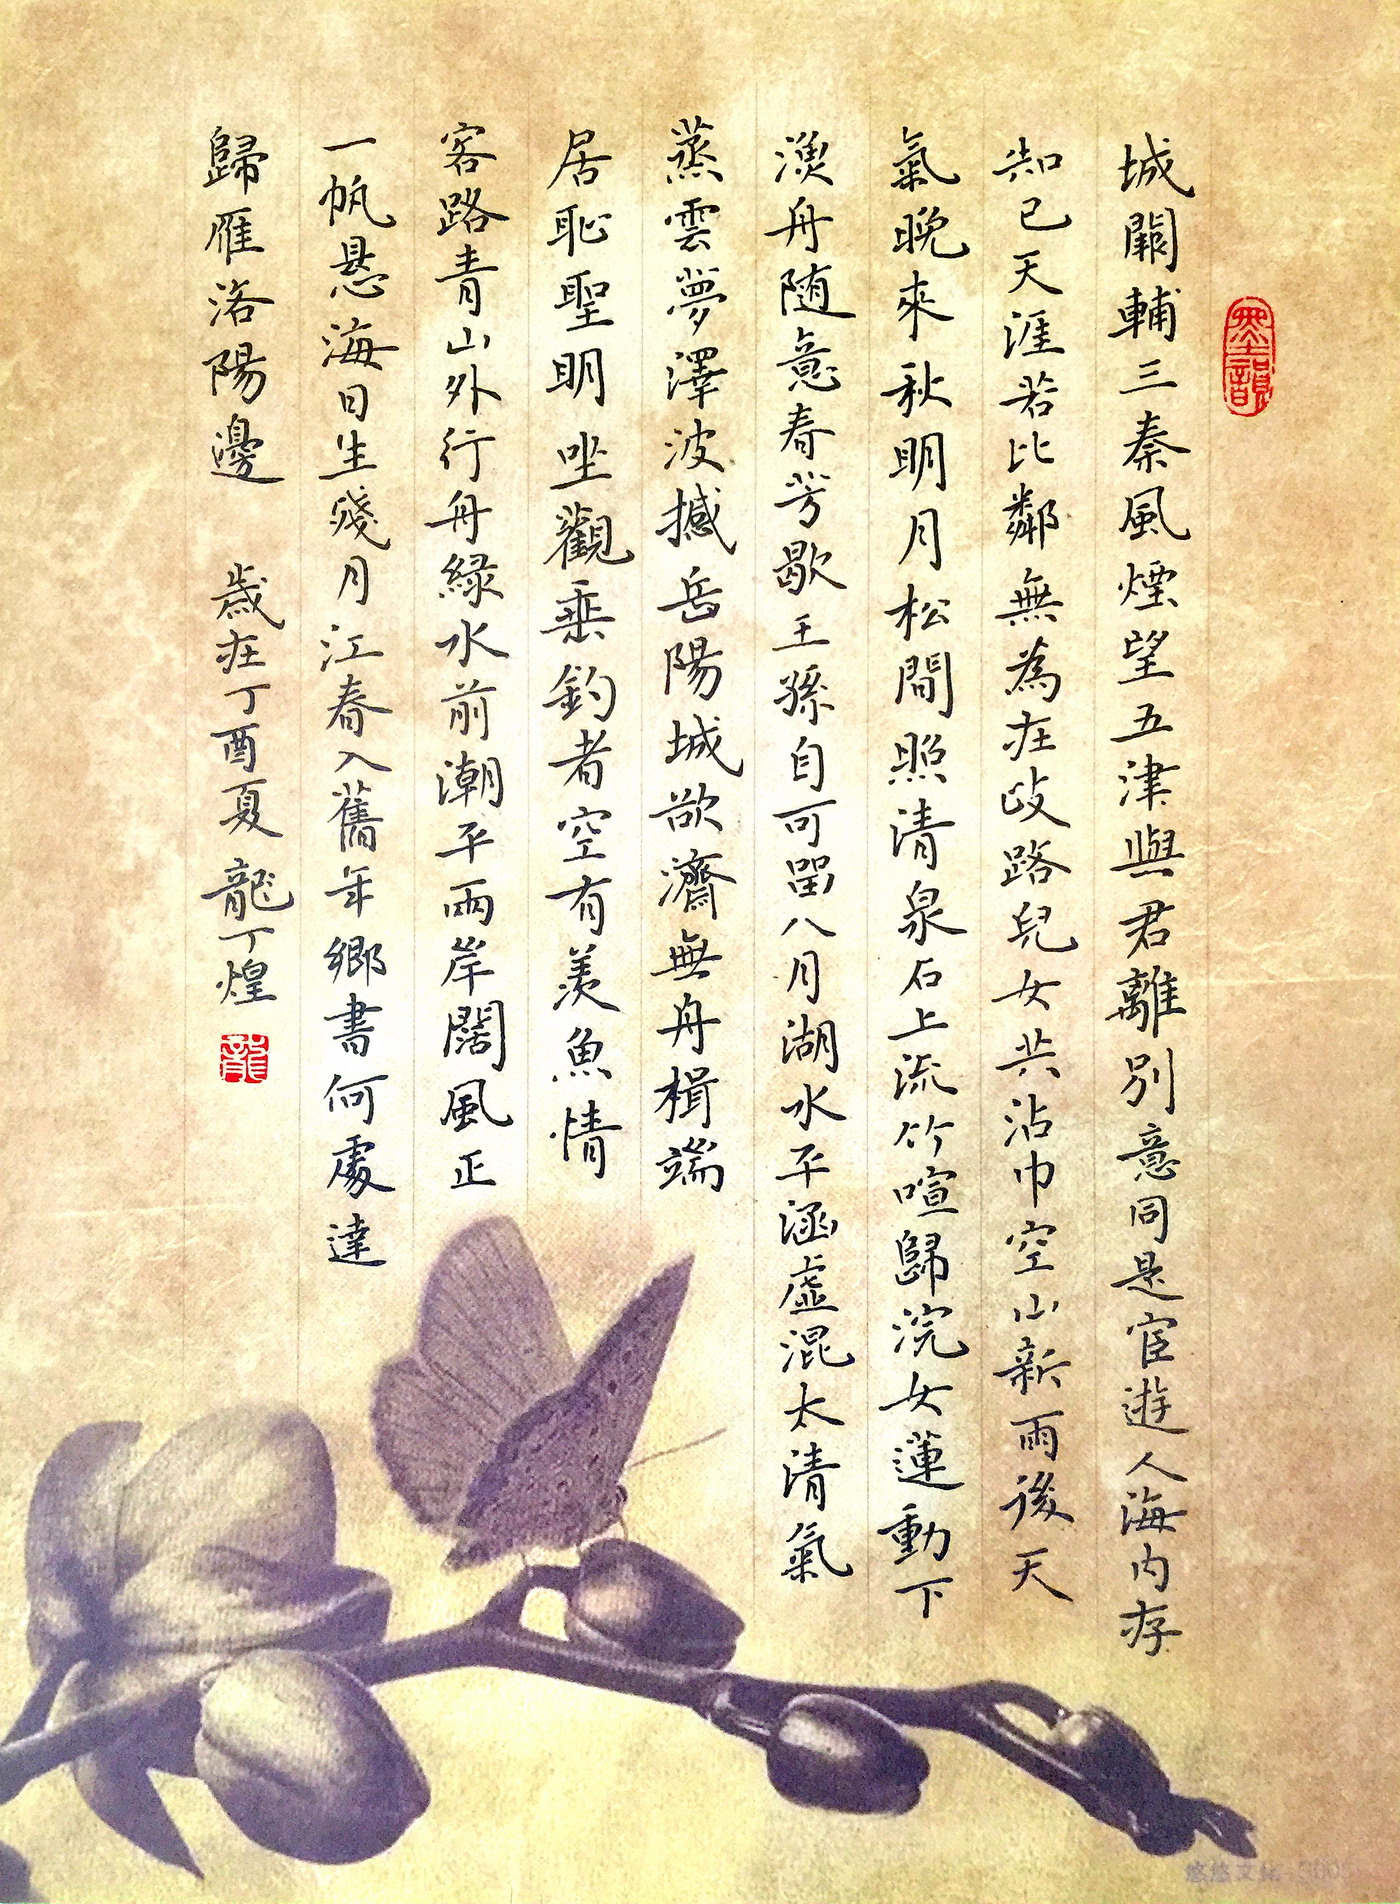 墨韻
城闕輔三秦風煙望五津與君離別意同是宦遊人海内存
知己天涯若比鄰無為在歧路兒女共沾巾空山新雨後天
氣晚來秋明月松間照清泉石上流竹喧歸浣女蓮動下
漁舟随意春芳歇王孫自可留八月湖水平涵虛混太清氣
蒸雲夢澤波撼岳陽城欲濟無舟楫端
居恥聖明坐觀垂釣者空有羨魚情
客路青山外行舟緑水前潮平兩岸闊風正
一帆悬海日生殘月江春入舊年鄉書何處達
歸雁洛陽邊 歲在丁酉夏龍丁煌
龍
悠悠文化